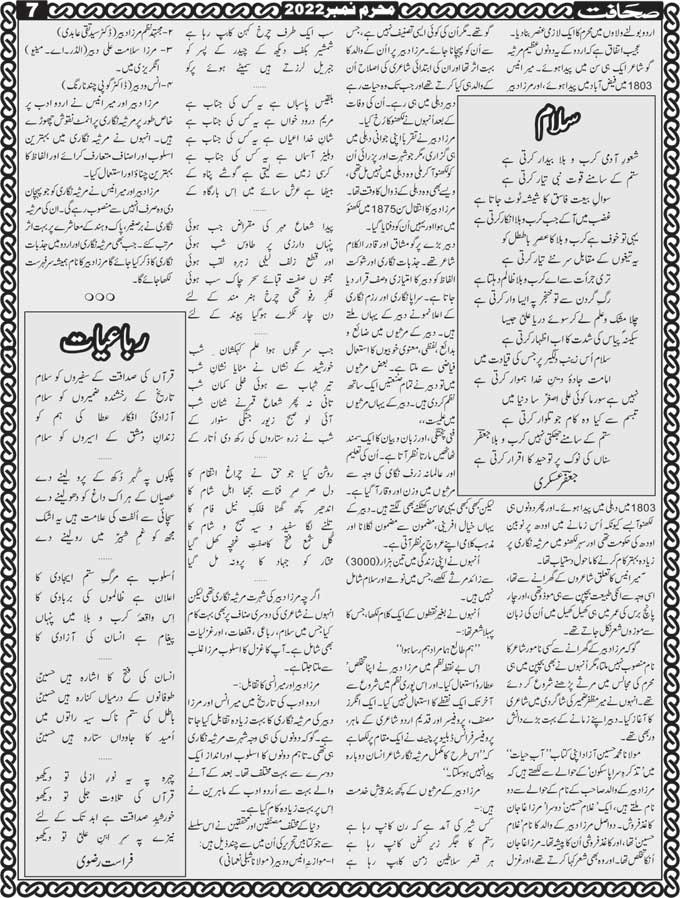 صحافت
محرم نمبر 2022
7
اردو بولنے والوں میں محرم کا ایک لازمی عنصر بنا دیا۔
عجیب اتفاق ہے کہ اردو کے یہ دونوں عظیم مرثیہ
گو شاعر ایک ہی سن میں پیدا ہوئے۔ میر انیس
1803 میں فیض آباد میں پیدا ہوئے، اور مرزا دبیر
سلام
شعورِ آدمی کرب و بلا بیدار کرتی ہے
ستم کے سامنے قوت نبی تیار کرتی ہے
سوالِ بیعت فاسق کا شیشہ ٹوٹ جاتا ہے
غضب میں آ کے جب کرب و بلا انکار کرتی ہے
یہی تو خوف ہے کرب و بلا کا عصرِ باطل کو
یہ تیغوں کے مقابل سر نئے تیار کرتی ہے
تری جرأت سے اے کرب و بلا ظالم دہلتا ہے
رگِ گردن سے تو خنجر پہ ایسا وار کرتی ہے
چلا مشک و علم لے کر سوئے دریا علیؑ جیسا
سکینہؑ پیاس کی شدت کا اب اظہار کرتی ہے
سلام اُس زینبِ دلگیر پر جس کی قیادت میں
امامت جادۂ دینِ خدا ہموار کرتی ہے
نہیں ہے سورما کوئی علی اصغرؑ سا دنیا میں
تبسم سے کیا وہ کام جو تلوار کرتی ہے
ستم کے سامنے جھکتی نہیں کرب و بلا جعفر
سناں کی نوک پر توحید کا اقرار کرتی ہے
جعفر عسکری
1803 میں دہلی میں پیدا ہوئے۔ اور پھر دونوں ہی
لکھنؤ آبسے کیونکہ اُس زمانے میں اودھ پر نوابین
اودھ کی حکومت تھی اور لکھنؤ شہر میں مرثیہ نگاری پر
زیادہ بہتر کام کرنے کا ماحول دستیاب تھا۔
میر انیس کا تعلق شاعروں کے گھرانے سے تھا،
اسی وجہ سے انکی طبیعت بچپن ہی سے موذوں تھی، اور چار
پانچ برس کی عمر میں ہی کھیل کھیل میں اُن کی زبان
سے موزوں شعر نکل جاتے تھے۔
گو کہ مرزا دبیر کے گھرانے سے کسی نامور شاعر کا
نام منصوب نہیں ملتا، مگر اُنہوں نے بھی بچپن میں ہی
محرم کی مجالس میں مرثیے پڑھنے شروع کر دئے
تھے۔ انہوں نے میر مظفر ضمیر کی شاگردی میں شاعری
کا آغاز کیا۔ دبیر اپنے زمانے کے بہت بڑے دانش
ور بھی تھے۔
مولانا محمد حسین آزاد اپنی کتاب ”آب حیات“
میں ’تذکرہ سراپا سکون‘ کے حوالے سے لکھتے ہیں کہ
مرزا دبیر کے والد صاحب کے نام کے حوالے سے دو
نام ملتے ہیں، ایک ’غلام حسین‘ دوسرا ’مرزا غاجان
کاغذ فروش۔ دراصل مرزا دبیر کے والد کا نام مرزا غاجان
تھا اور کاغذ فروشی اُن کا پیشہ تھا۔ مرزا غاجان اُن
انکا تخلص تھا۔ اور وہ بھی شعر کہا کرتے تھے، اور غزل
گو تھے۔ مگر اُن کی کوئی ایسی تصنیف نہیں ہے، جس
سے اُن کو پہچانا جائے۔ مرزا دبیر پر اُن کے والد کا
بہت اثر تھا اور اُن کی ابتدائی شاعری کی اصلاح اُن
کے والد ہی کیا کرتے تھے، اور جب تک وہ حیات رہے
دبیر دہلی میں ہی رہے۔ اُن کی وفات
کے بعد انہوں نے لکھنؤ کا رخ کیا۔
مرزا دبیر نے تقریباً اپنی جوانی دہلی میں
ہی گزاری مگر جو شہرت اور پزیرائی اُن
کو لکھنؤ آ کر ملی وہ دہلی میں نہیں ملی تھی،
ویسے بھی وہ دہلی کے ذوال کا وقت تھا۔
مرزا دبیر کا انتقال سن 1875 میں لکھنؤ
میں ہوا اور یہیں اُن کو دفنایا گیا۔
دبیر بڑے پُر مشاق اور قادر الکلام
شاعر تھے۔ جذبات نگاری اور شوکت
الفاظ کو دبیر کا امتیازی وصف قرار دیا
جاتا ہے۔ سراپا نگاری اور رزم نگاری
کے اعلا نمونے دبیر کے یہاں ملتے
ہیں۔ دبیر کے مرثیوں میں ضائع و
بدائع، لفظی، معنوی خوبیوں کا استعمال
فیاضی سے ملتا ہے۔ بعض مرثیوں
میں تو دبیر نے تمام صنعتیں ایک ساتھ
نظم کر دی ہیں۔ دبیر کے یہاں مرثیوں
میں علمیت،،
فنی پختگی، اور زبان و بیان کا ایک سمند
ٹھاٹھیں مارتا نظر آتا ہے۔ اُن کی تعلیم
اور عالمانہ زرف نگاہی کی وجہ سے
مرثیوں میں وزن اور وقار آ گیا ہے۔
لیکن کبھی کبھی یہی محاسن کھٹکنے بھی لگتے ہیں۔ دبیر کے
یہاں خیال آفرینی، مضمون سے مضمون نکالنا اور
مذہب کلامی اپنے عروج پر نظر آتی ہے۔
اُنہوں نے اپنی زندگی میں تین ہزار (3000)
سے زائد مرثیے لکھے، جس میں نوحے اور سلام شامل
نہیں ہیں۔
اُنہوں نے بغیر نقطوں کے ایک کلام لکھا، جس کا
پہلا شعر تھا:-
”ہم طالع ہما مراد ہم رسا ہوا“
اِس بے نقط نظم میں مرزا دبیر نے اپنا تخلص ’
عطارد‘ استعمال کیا۔ اور اس پوری نظم میں شروع سے
آخر تک ایک نقطے کا استعمال نہیں کیا۔ ایک انگرز
مصنف، پروفیسر اور قدیم اردو شاعری کے ماہر،
پروفیسر فرانسس ڈبلیو پرچیٹ نے ایک مقام پر لکھا ہے
کہ ”اس طرح کا مکمل مرثیہ نگار شاعر انسان دوبارہ
پیدا نہیں ہو سکتا۔“
مرزا دبیر کے مرثیوں کے کچھ بند پیش خدمت
ہیں:-
کس شیر کی آمد ہے کہ رن کانپ رہا ہے
رستم کا جگر زیرِ کفن کانپ رہا ہے
ہر قصرِ سلاطینِ زمن کانپ رہا ہے
سب ایک طرف چرخِ کہن کانپ رہا ہے
شمشیر بکف دیکھ کے حیدر کے پسر کو
جبریل لرزتے ہیں سمیٹے ہوئے پر کو
......
بلقیس پاسباں ہے یہ کس کی جناب ہے
مریم درود خواں ہے یہ کس کی جناب ہے
شانِ خدا عیاں ہے یہ کس کی جناب ہے
دہلیز آسماں ہے یہ کس کی جناب ہے
کرسی زمیں سے لیتی ہے گوشے پناہ کے
بیٹھا ہے عرش سائے میں اس بارگاہ کے
......
پیدا شعاعِ مہر کی مقراض جب ہوئی
پنہاں درازیِ پر طاؤسِ شب ہوئی
اور قطع زلفِ لیلیٰ زہرہ لقب ہوئی
مجنوں صفت قبائے سحر چاک سب ہوئی
فکرِ رفو تھی چرخِ ہنر مند کے لئے
دن چار ٹکڑے ہوگیا پیوند کے لئے
......
جب سرنگوں ہوا علمِ کہکشانِ شب
خورشید کے نشاں نے مٹایا نشانِ شب
تیرِ شہاب سے ہوئی خالی کمانِ شب
تانی نہ پھر شعاعِ قمر نے سنانِ شب
آئی جو صبح زیور جنگی سنوار کے
شب نے زرہ ستاروں کی رکھ دی اُتار کے
......
روشن کیا جو حق نے چراغِ انتقام کا
دل صرِ صرِ فنا سے بجھا اہلِ شام کا
اندھیر کچھ گھٹا فلکِ نیل فام کا
تلنے لگا سفید و سیہ صبح و شام کا
گل شمعِ فتح کا صفتِ غنچہ کھل گیا
مختار کو جہاد کا پروانہ مل گیا
......
اگرچہ مرزا دبیر کی شہرت مرثیہ نگاری تھی لیکن
انہوں نے شاعری کی دوسری صناف پر بھی بہت کام
کیا جس میں سلام، رباعی، قطعات، اور غزلیات
بھی شامل ہے۔ آپ کا غزل کا اسلوب مرزا غالب
سے ملتا جلتا ہے۔
مرزا دبیر اور میر انسی کا تقابل:-
اردو ادب کی تاریخ میں میر انس اور مرزا
دبیر کی مرثیہ نگاری کا بہت زیادہ تقابل کیا جاتا
ہے۔ گو کہ دونوں کی ہی وجہ شہرت مرثیہ نگاری
ہی تھی۔ تاہم دونوں کا اسلوب اور انداز ایک
دوسرے سے بہت مختلف تھا۔ بعد کے آنے
والے بہت سے اُردو ادب کے ماہرین نے
اِس پر بہت زیادہ کام کیا ہے۔
دنیا کے مختلف مصنفین اور محققین نے اس سلسلے
سے جو کتابیں تحریر کی اُن میں سے چند ذیل ہیں:-
۱-موازنہ انیس و دبیر (مولانا شبلی نعمانی)
۲-مجتہد نظم مرزا دبیر (ڈاکٹر سید تقی عابدی)
۳- مرزا سلامت علی دبیر (الڈر۔اے۔ مینیو)
انگریزی میں۔
۴-انس و دبیر (گوپی چند نارنگ)
مرزا دبیر اور میر انیس نے اردو ادب پر
خاص طور پر مرثیہ نگاری پر انمٹ نقوش چھوڑے
ہیں۔ انہوں نے مرثیہ نگاری میں بہترین
اسلوب اور اضاف متعارف کرائے اور الفاظ کا
بہترین چناؤ اور استعمال کیا۔
مرزا دبیر اور میر انیس نے مرثیہ نگاری کو جو پہچان
دی وہ صرف انہیں سے منصوب رہے گی۔ اُن کی مرثیہ
نگاری نے برصغیر، پاک و ہند کے معاشرے پر بہت اثر
مرتب کئے۔ جب بھی مرثیہ نگاری اور اردو میں جذبات
نگاری کا ذکر کیا جائے گا مرزا دبیر کا نام ہمیشہ سرفہرست
لکھا جائے گا۔
○○○
رباعیات
قرآں کی صداقت کے سفیروں کو سلام
تاریخ کے رخشندہ ضمیروں کو سلام
آزادیِ افکار عطا کی ہم کو
زندانِ دمشق کے اسیروں کو سلام
......
پلکوں پہ گہر دُکھ کے پرو لینے دے
عصیاں کے ہر اک داغ کو دھو لینے دے
سچائی سے اُلفت کی علامت ہیں یہ اشک
مجھ کو غمِ شبیرؑ میں رو لینے دے
......
اُسلوب ہے مرگِ ستم ایجادی کا
اعلان ہے ظالموں کی بربادی کا
اِس واقعۂ کرب و بلا میں پنہاں
پیغام ہے انسان کی آزادی کا
......
انسان کی فتح کا اشارہ ہیں حسینؑ
طوفانوں کے درمیاں کنارہ ہیں حسینؑ
باطل کی ستم ناک سیہ راتوں میں
اُمید کا جاوداں ستارہ ہیں حسینؑ
......
چہرہ پہ یہ نورِ ازلی تو دیکھو
قرآں کی تلاوت جلی تو دیکھو
خورشیدِ صداقت ہے ابد تک کے لئے
نیزے پہ سرِ ابنِ علیؑ تو دیکھو
فراست رضوی